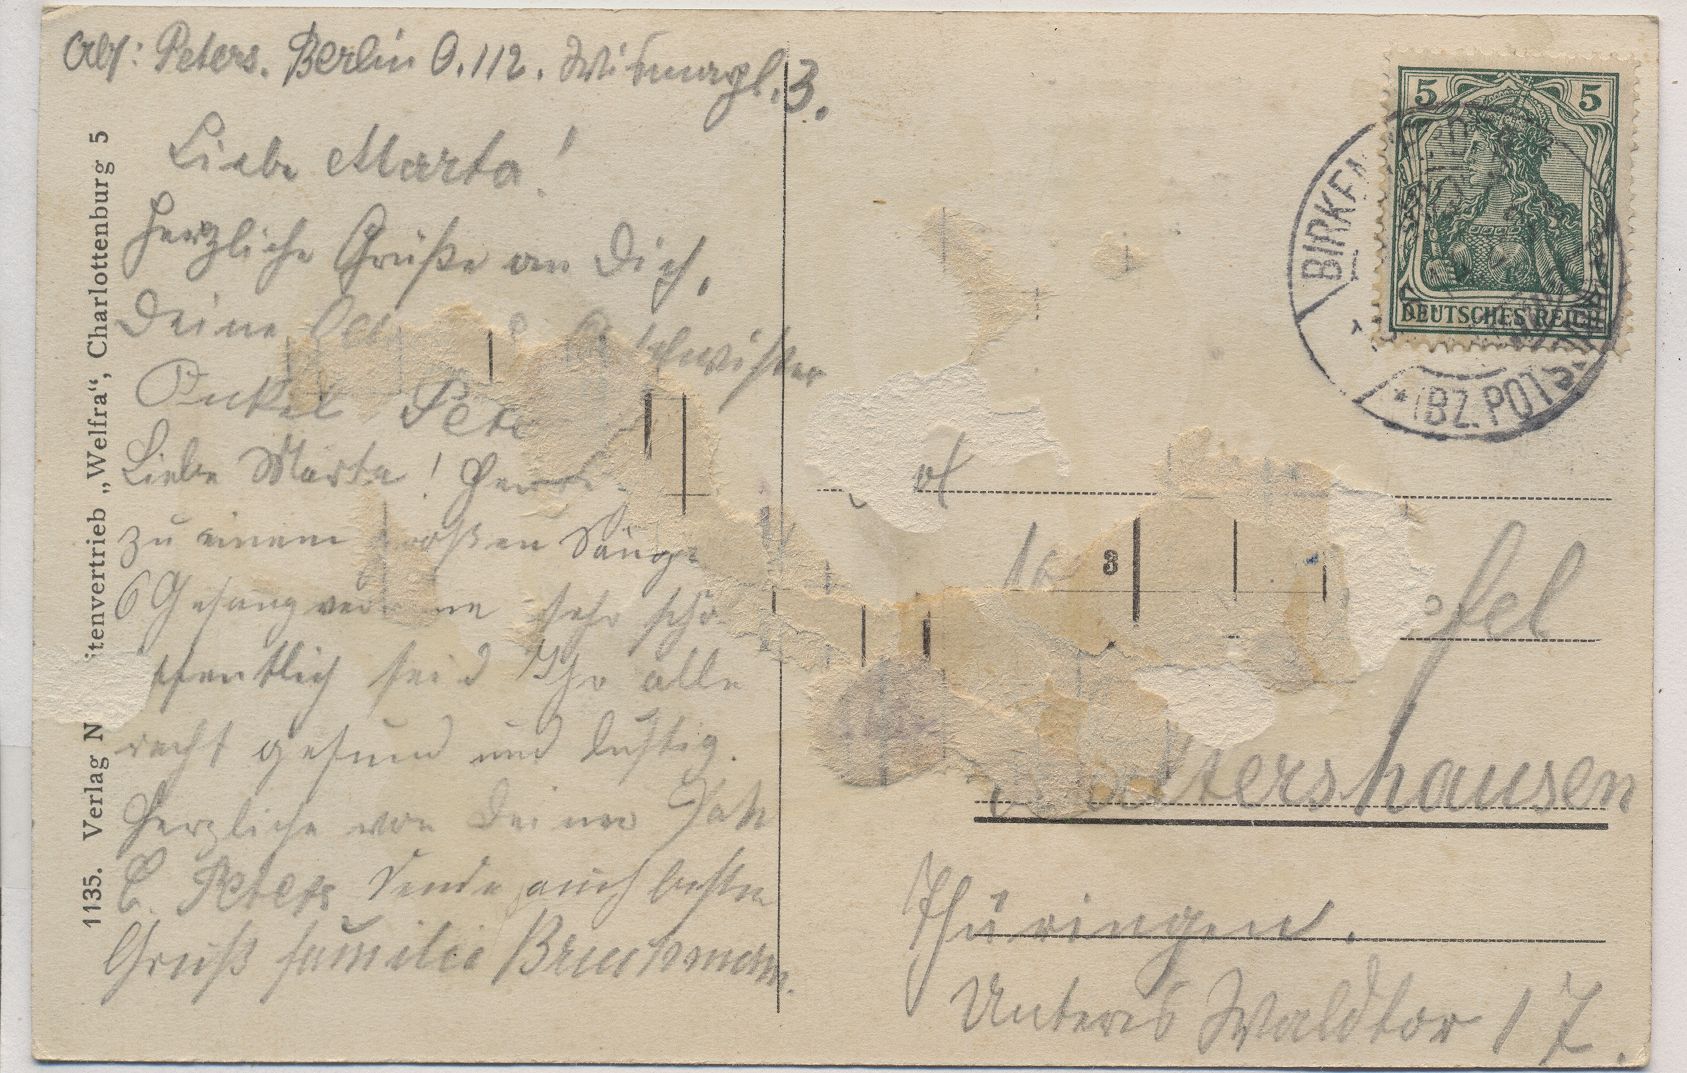 Abs: Peters. Berlin O.112. Wismarpl. 3.
Liebe Marta!
Herzliche Grüße an Dich,
Deine
Onkel Pet
Liebe Marta! Heute
zu einem großen Sänge
6 Gesangvereine sehr schö
offentlich seid Ihr alle
recht gesund und lustig.
Herzliche von Deiner
E. Peters Sende auch beste
Gruß Familie
1135. Verlag N itenvertrieb „Welfra“, Charlottenburg 5
5 5
DEUTSCHES REICH
BIRKEN
*(BZ. POTSD
3
fel
Waltershausen
Thüringen.
Unteres Waldtor 17.